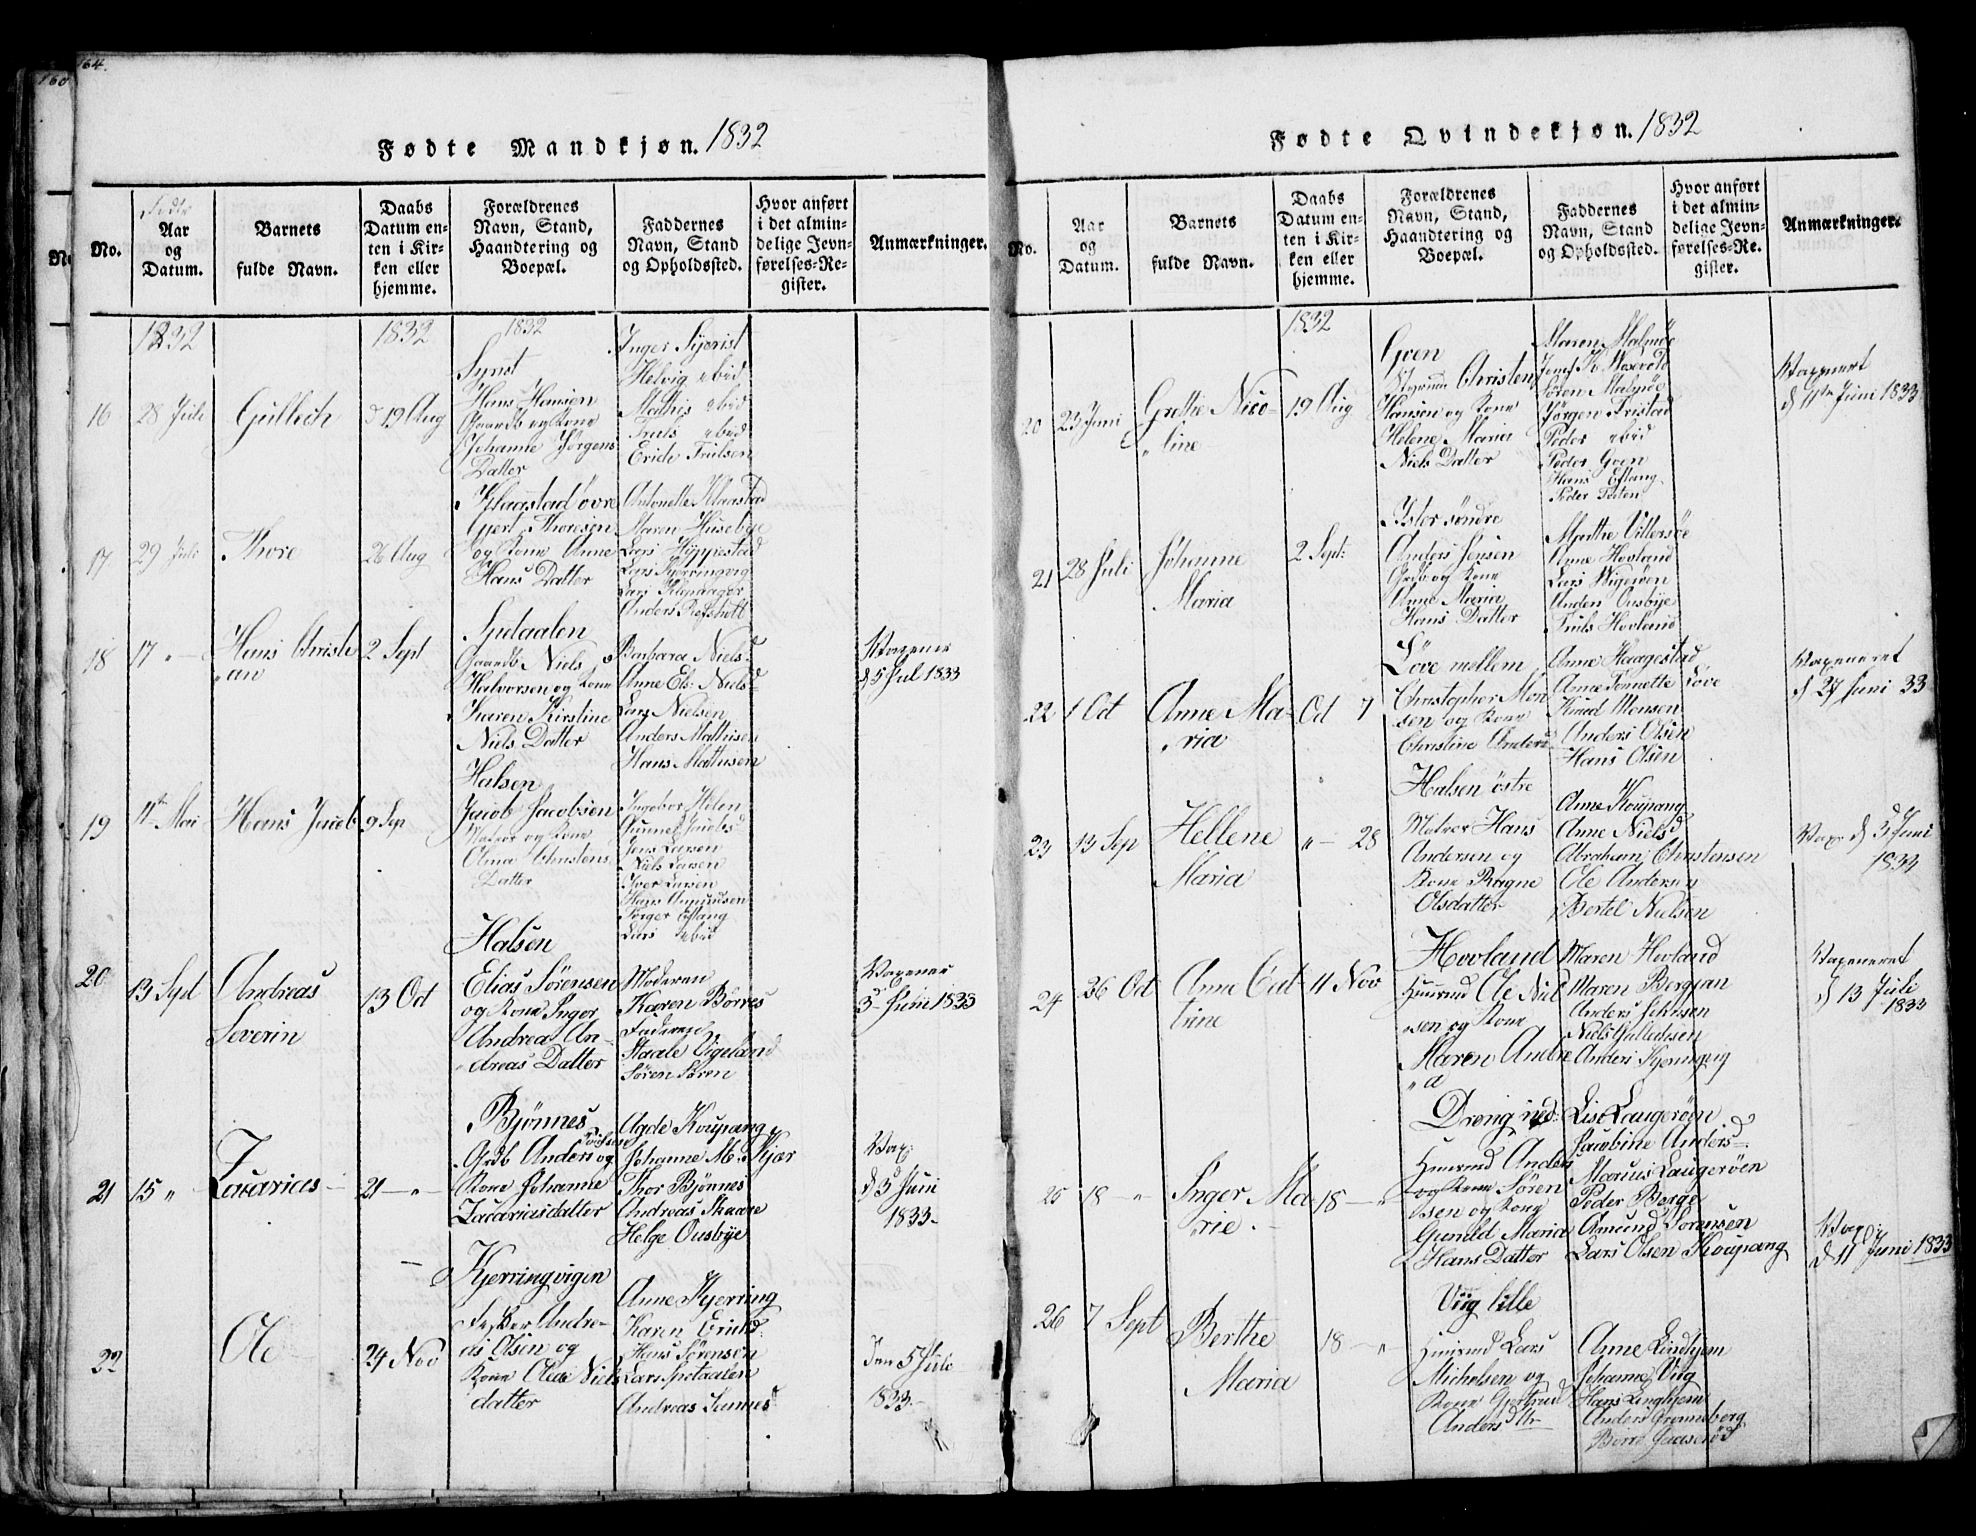 160
164.
Fødte Mandkjøn. 1832
No.
Fødte
Aar
og
Datum.
Barnets
fulde Navn.
Daabs
Datum en-
ten i Kir-
ken eller
hjemme.
Forældrenes
Navn, Stand,
Haandtering og
Boepæl.
Faddernes
Navn, Stand
og Opholdssted.
Hvor anført
i det almin-
delige Jevn-
førelses-Re-
gister.
Anmærkninger.
1832
1832
1832
16
28 Juli
Gullich
d 19 Aug
Hans Hansen
Gaardb og Kone
Johanne Jørgens
Datter
Helvig ibid
Mathis ibid
Truls ibid
Erich Trulsen
17
29 Juli
Thore
26 Aug
Klaastad øvre
Gjert Thoresen
og Kone Anne
Hans Datter
Antonette Klaastad
Maren Huseby
Lars Hyppestad
Lars Kjerringvig
Anders Refsholt
18
17 "
Hans Christi
"an
2 Sept
Gaardb Niels
Halvorsen og Kone
Karen Kirstine
Niels Datter
Barbara Nielsd
Anne Els: Nielsd
Lars Nielsen
Anders Mathisen
Hans Mathisen
Vaxener
d 5 Jul 1833
19
11te Mai
Hans Jacob
9 Sep
Halsen
Jacob Jacobsen
Matros og Kone
Christens
Datter
Gunnel Jacobsd
Jens Larsen
Niels Larsen
Iver Larsen
Hans Amundsen
Lars ibid
20
13 Sept
Andreas
Severin
13 Oct
Halsen
Elias Sørensen
og Kone Inger
Andrea An-
dreas Datter
Moderen
Karen Børres
Faderen
Staale Vigeland
Søren Søren
Vaxener
3 Juni 1833
21
15 "
Zacarias
21 — "
Bjønnes
Grdb Anders og
Kone Johanne
Zacariasdatter
Agde Koupang
Johanne M: Kjær
Thor Bjønnes
Andreas Skaare
Helge Ousbye
Vax:
d 3 Juni
1833
22
Ole
24 Nov
Kjerringvigen
Fisker Andre-
as Olsen og
Kone Niels
datter
Anne Kjerring
Karen Erichsd:
Hans Sørensen
Den 5 Juli
1833
Fødte Qvindekjøn. 1832
No.
Aar
og
Datum.
Barnets
fulde Navn.
Daabs
Datum en-
ten i Kir-
ken eller
hjemme.
Forældrenes
Navn, Stand,
Haandtering og
Boepæl.
Faddernes
Navn, Stand
og Opholdssted.
Hvor anført
i det almin-
delige Jevn-
førelses-Re-
gister.
Anmærkninger.
1832
20
23 Juni
Grethe Nico-
"line
19 Aug
Goen
Styrmd Christen
Hansen og Kone
Helene Maria
Niels Datter
Maren Malmøe
Søren Malmøe
Jørgen Fristad
Peder ibid
Peder Goen
Hans Eftang
Vaxenert
d 11te Juni 1833
21
28 Juli
Johanne
Maria
2 Sept:
Ister søndre
Anders Jensen
Grdb og Kone
Anne Maria
Hans Datter
Marthe Villersøe
Anne Hovland
Lars Wigerøen
Anders Ousbye
Truls Hovland
22
1 Oct
Anne Ma-
"ria
Oct 7
Løve mellem
Christopher Mon
sen og Kone
Christine Anders
Anne Haagestad
Anne Tonnette Løve
Knud Monsen
Anders Olsen
Hans Olsen
Vaxeneret
d 27 Juni 33
23
13 Sep
Hellene
Maria
" — 28
Halsen østre
Matros Hans
Andersen og
Kone Ragne
Olsdatter
Anne Koupang
Anne Nielsd
Abraham Christensen
Ole Andersen
Bertel Nielsen
Vaxr d 3 Juni
1833
24
26 Oct
Anne Cat
trine
11 Nov
Hovland
Huusmd Ole Niel
"sen og Kone
Maren Andre
"a
Maren Hovland
Maren Bergjan
Anders Johnsen
Niels Gullichsen
Anders Kjerringvig
Vaxeneret
d 13 Juli
1833
25
18 — "
Inger Ma
"rie
18 — "
Huusmd Anders
Søren
sen og Kone
Gunild Maria
Hans Datter
Lise Laugerøen
Jacobine Andersd
Marius Laugerøen
Peder Berge
Amund Sørensen
Lars Olsen Koupang
Vax:
d 11 Juni 1833
26
7 Sept
Berthe
Maria
18 — "
Viig lille
Huusmd Lars
Michelsen og
Kone Gjertrud
Anders Dtr
Anne Lindhjem
Johanne Viig
Hans Linghjem
Anders Grønneberg